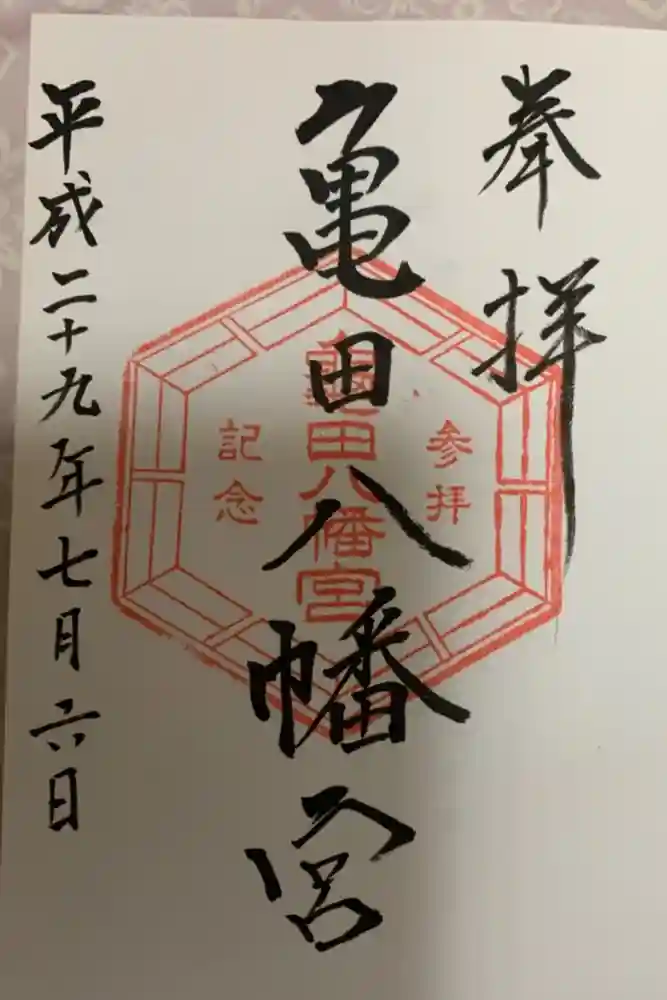 奉拝
亀田八幡宮
参拝
龜田八幡宮
記念
平成二十九年七月六日